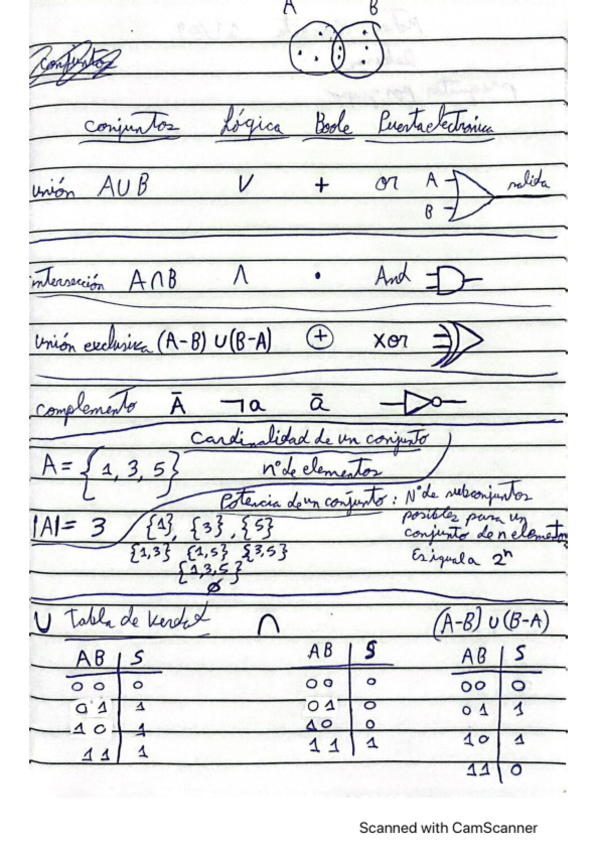 A B
Conjuntos
Conjuntos Lógica Boole Puerta electrónica
unión A∪B ∨ + or A B salida
intersección A∩B ∧ • And
unión exclusiva (A-B)∪(B-A) ⊕ xor
complemento Ā ¬a ā
Cardinalidad de un conjunto
A={1, 3, 5} nº de elementos
Potencia de un conjunto: Nº de subconjuntos
posibles para un
|A|= 3 {1}, {3}, {5} conjunto de n elementos
{1,3} {1,5} {3,5} Es igual a 2ⁿ
{1,3,5}
∅
∪ Tabla de Verdad ∩ (A-B)∪(B-A)
AB | S AB | S AB | S
0 0 | 0 00 | 0 00 | 0
0 1 | 1 01 | 0 01 | 1
1 0 | 1 10 | 0 10 | 1
1 1 | 1 11 | 1 11 | 0
Scanned with CamScanner